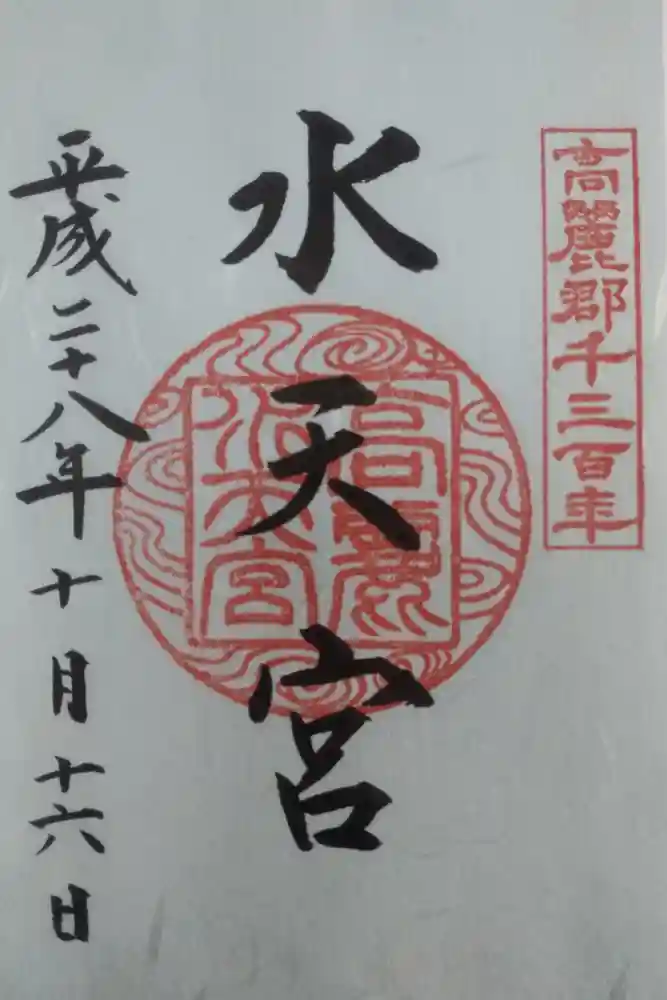 高麗郡千三百年
水天宮
高麗
水天宮
平成二十八年十月十六日